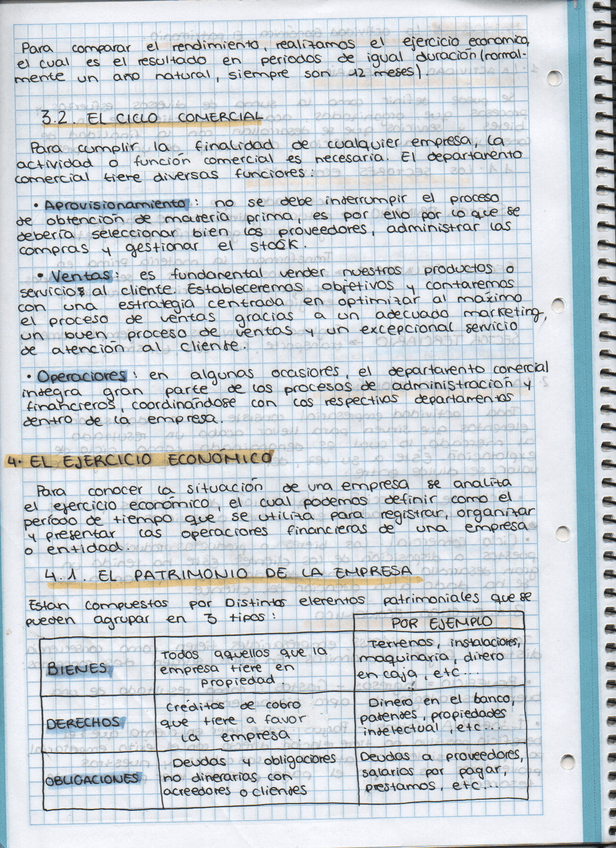 Para comparar el rendimiento, realizamos el ejercicio economico,
el cual es el resultado en periodos de igual duración (normal-
mente un año natural, siempre son 12 meses).
3.2. EL CICLO COMERCIAL
Para cumplir la finalidad de cualquier empresa, la
actividad o función comercial es necesaria. El departamento
comercial tiene diversas funciones:
• Aprovisionamiento: no se debe interrumpir el proceso
de obtención de materia prima, es por ello por lo que se
debería seleccionar bien los proveedores, administrar las
compras y gestionar el stock.
• Ventas: es fundamental vender nuestros productos o
servicios al cliente. Estableceremos objetivos y contaremos
con una estrategia centrada en optimizar al máximo
el proceso de ventas gracias a un adecuado marketing,
un buen proceso de ventas y un excepcional servicio
de atención al cliente.
• Operaciones: en algunas ocasiones, el departamento comercial
integra gran parte de los procesos de administración y
financieros, coordinándose con los respectivos departamentos
dentro de la empresa.
4. EL EJERCICIO ECONÓMICO
Para conocer la situación de una empresa se analiza
el ejercicio económico, el cual podemos definir como el
período de tiempo que se utiliza para registrar, organizar
y presentar las operaciones financieras de una empresa
o entidad.
4.1. EL PATRIMONIO DE LA EMPRESA
Estan compuestos por Distintos elementos patrimoniales que se
pueden agrupar en 3 tipos:
POR EJEMPLO
BIENES
Todos aquellos que la
empresa tiene en
propiedad.
Terrenos, instalaciones,
maquinaria, dinero
en caja, etc...
DERECHOS
Créditos de cobro
que tiene a favor
la empresa.
Dinero en el banco,
patentes, propiedades
intelectual, etc...
OBLIGACIONES
Deudas y obligaciones
no dinerarias con
acreedores o clientes
Deudas a proveedores,
salarios por pagar,
prestamos, etc...